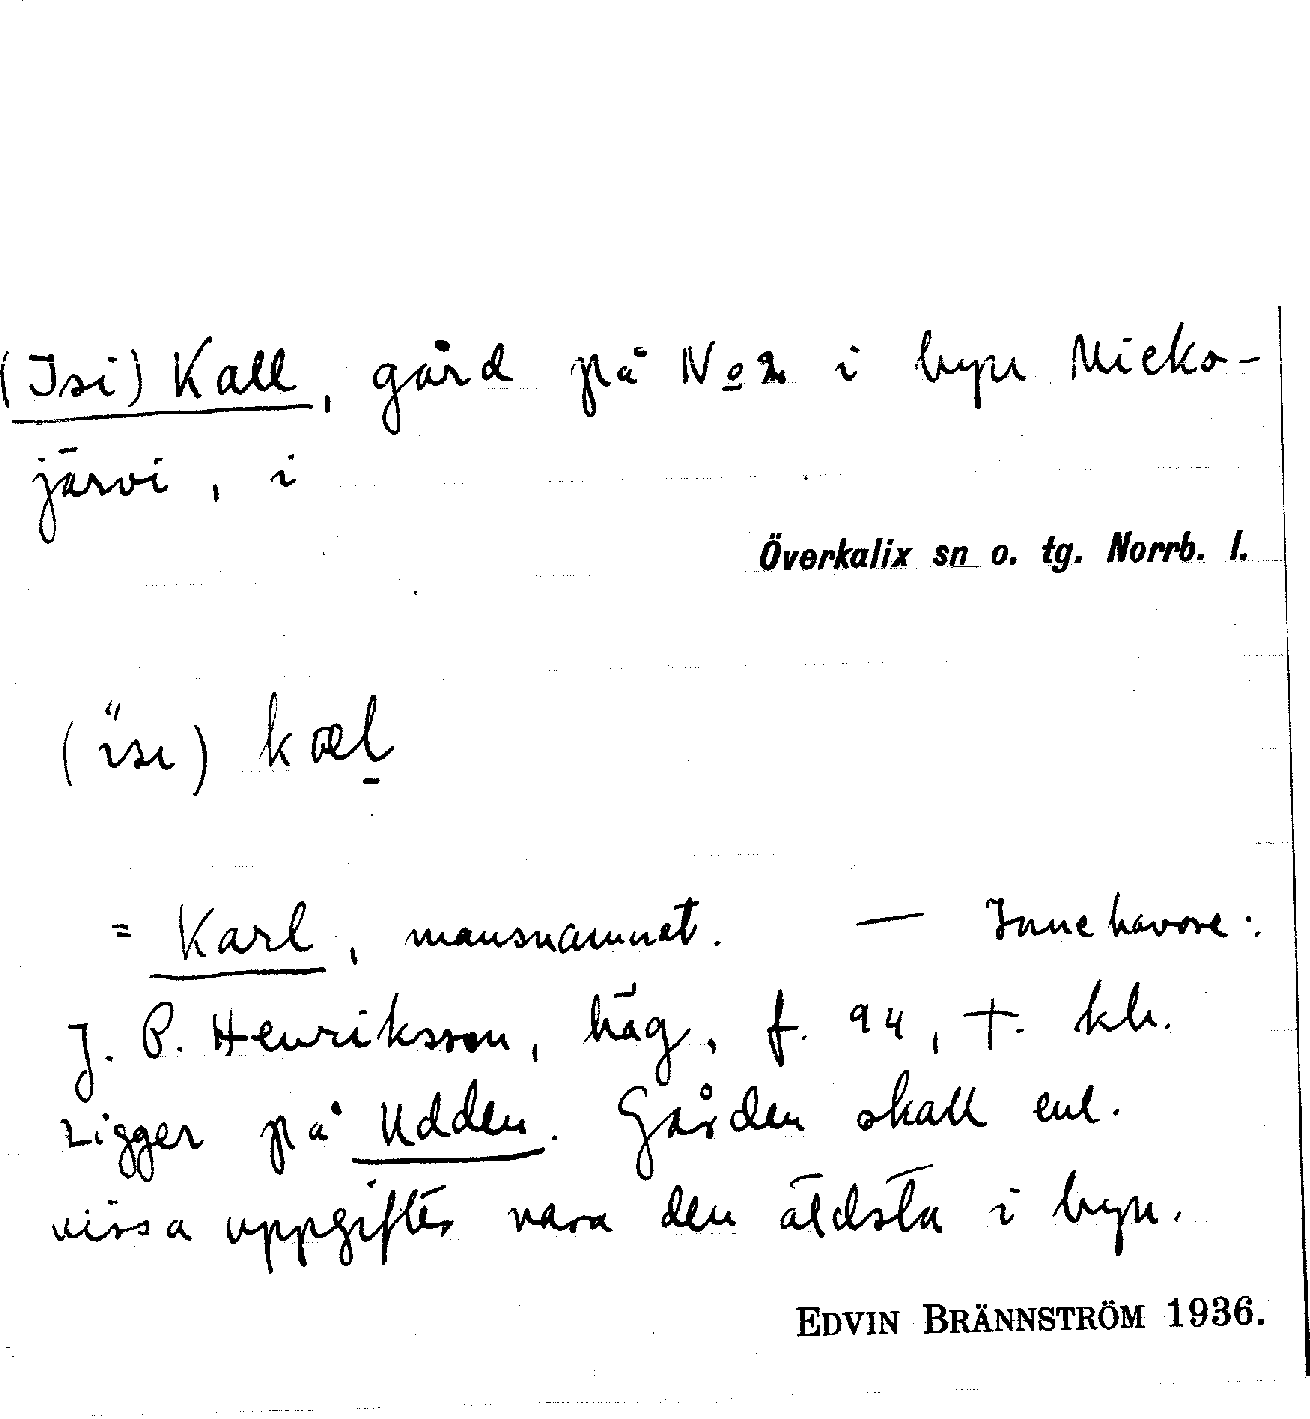 (Isi) Kall, gård på No 2 i byn Micko-
järvi, i
Överkalix sn o. tg. Norrb. l.
(ïsı) kæl̠
= Karl, mansnamnet. — Innehavare:
J. P. Henriksson, häg, f. 94, †. kh.
Ligger på Udden. Gården skall enl.
vissa uppgifter vara den äldsta i byn.
EDVIN BRÄNNSTRÖM 1936.